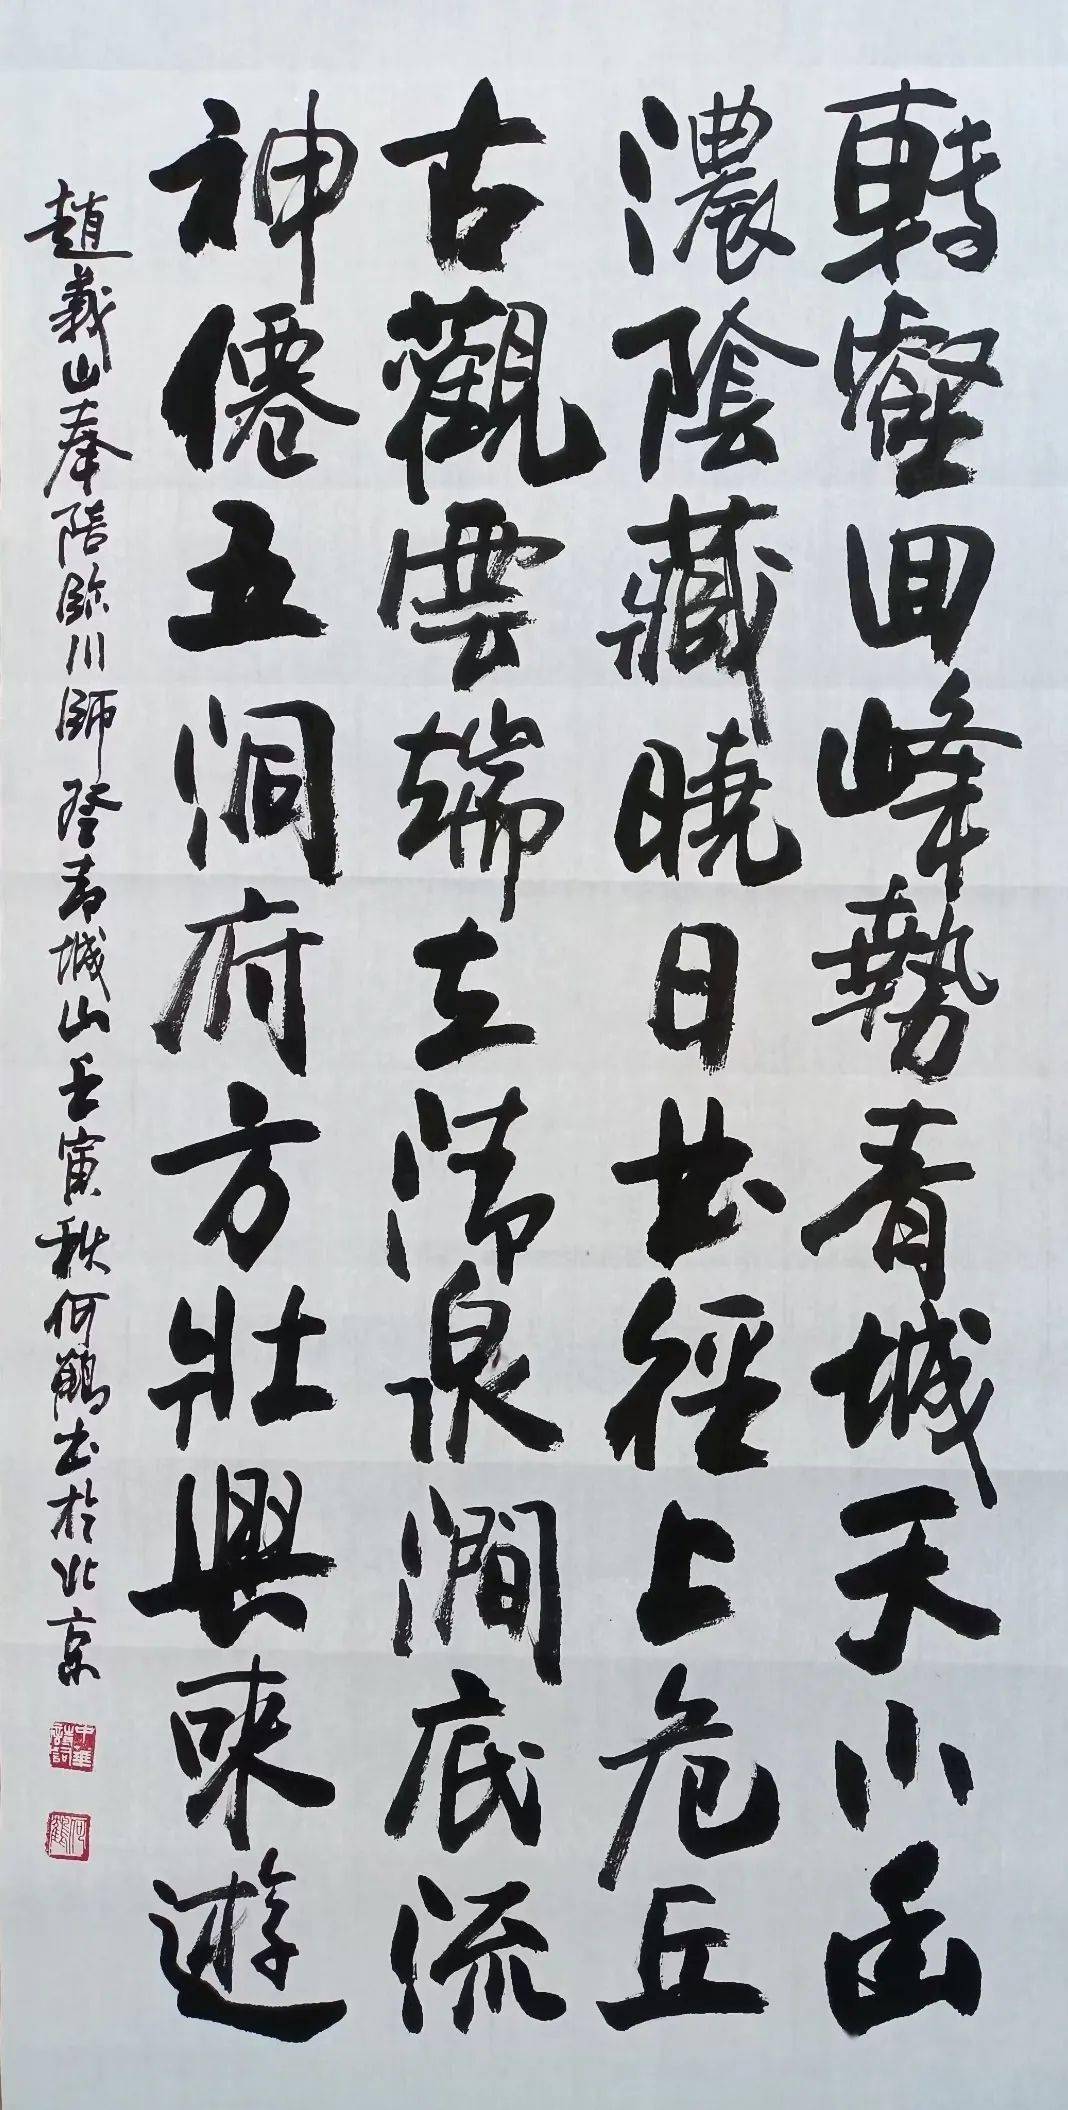 轉壑回峰勢青城天下幽
濃陰藏曉日曲徑上危丘
古觀雲端立清泉澗底流
神僊五洞府方壯興來遊
趙義山奉陪臨川師登青城山壬寅秋何鶴書於北京
中華詩詞
何鶴